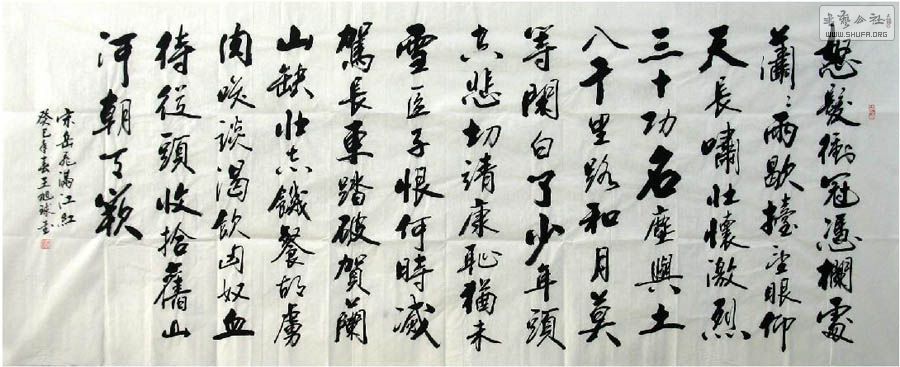 怒髮衝冠憑欄處
瀟〻雨歇擡望眼仰
天長嘯壯懷激烈
三十功名塵與土
八千里路和月莫
等閑白了少年頭
空悲切靖康恥猶未
雪臣子恨何時滅
駕長車踏破賀蘭
山缺壯志饑餐胡虜
肉笑談渴飲匈奴血
待從頭收拾舊山
河朝天闕
宋岳飛滿江紅
癸巳年春王旭球書
WWW.SHUFA.ORG